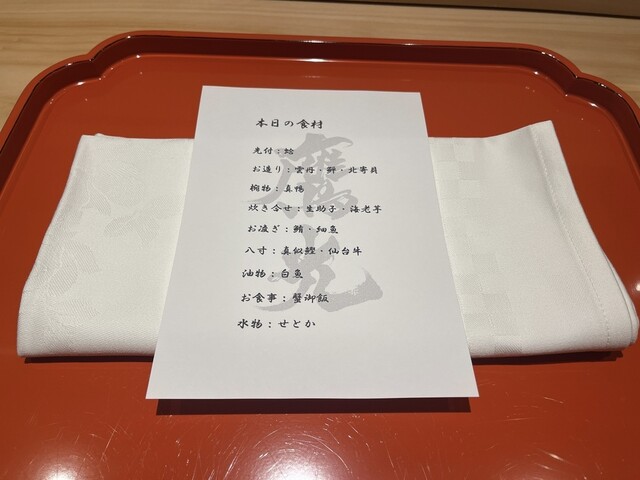 本日の食材
先付：蛤
お造り：雲丹・鰤・北寄貝
椀物：真鴨
炊き合せ：生助子・海老芋
お凌ぎ：鮪・細魚
八寸：真似鰹・仙台牛
油物：白魚
お食事：蟹御飯
水物：せとか